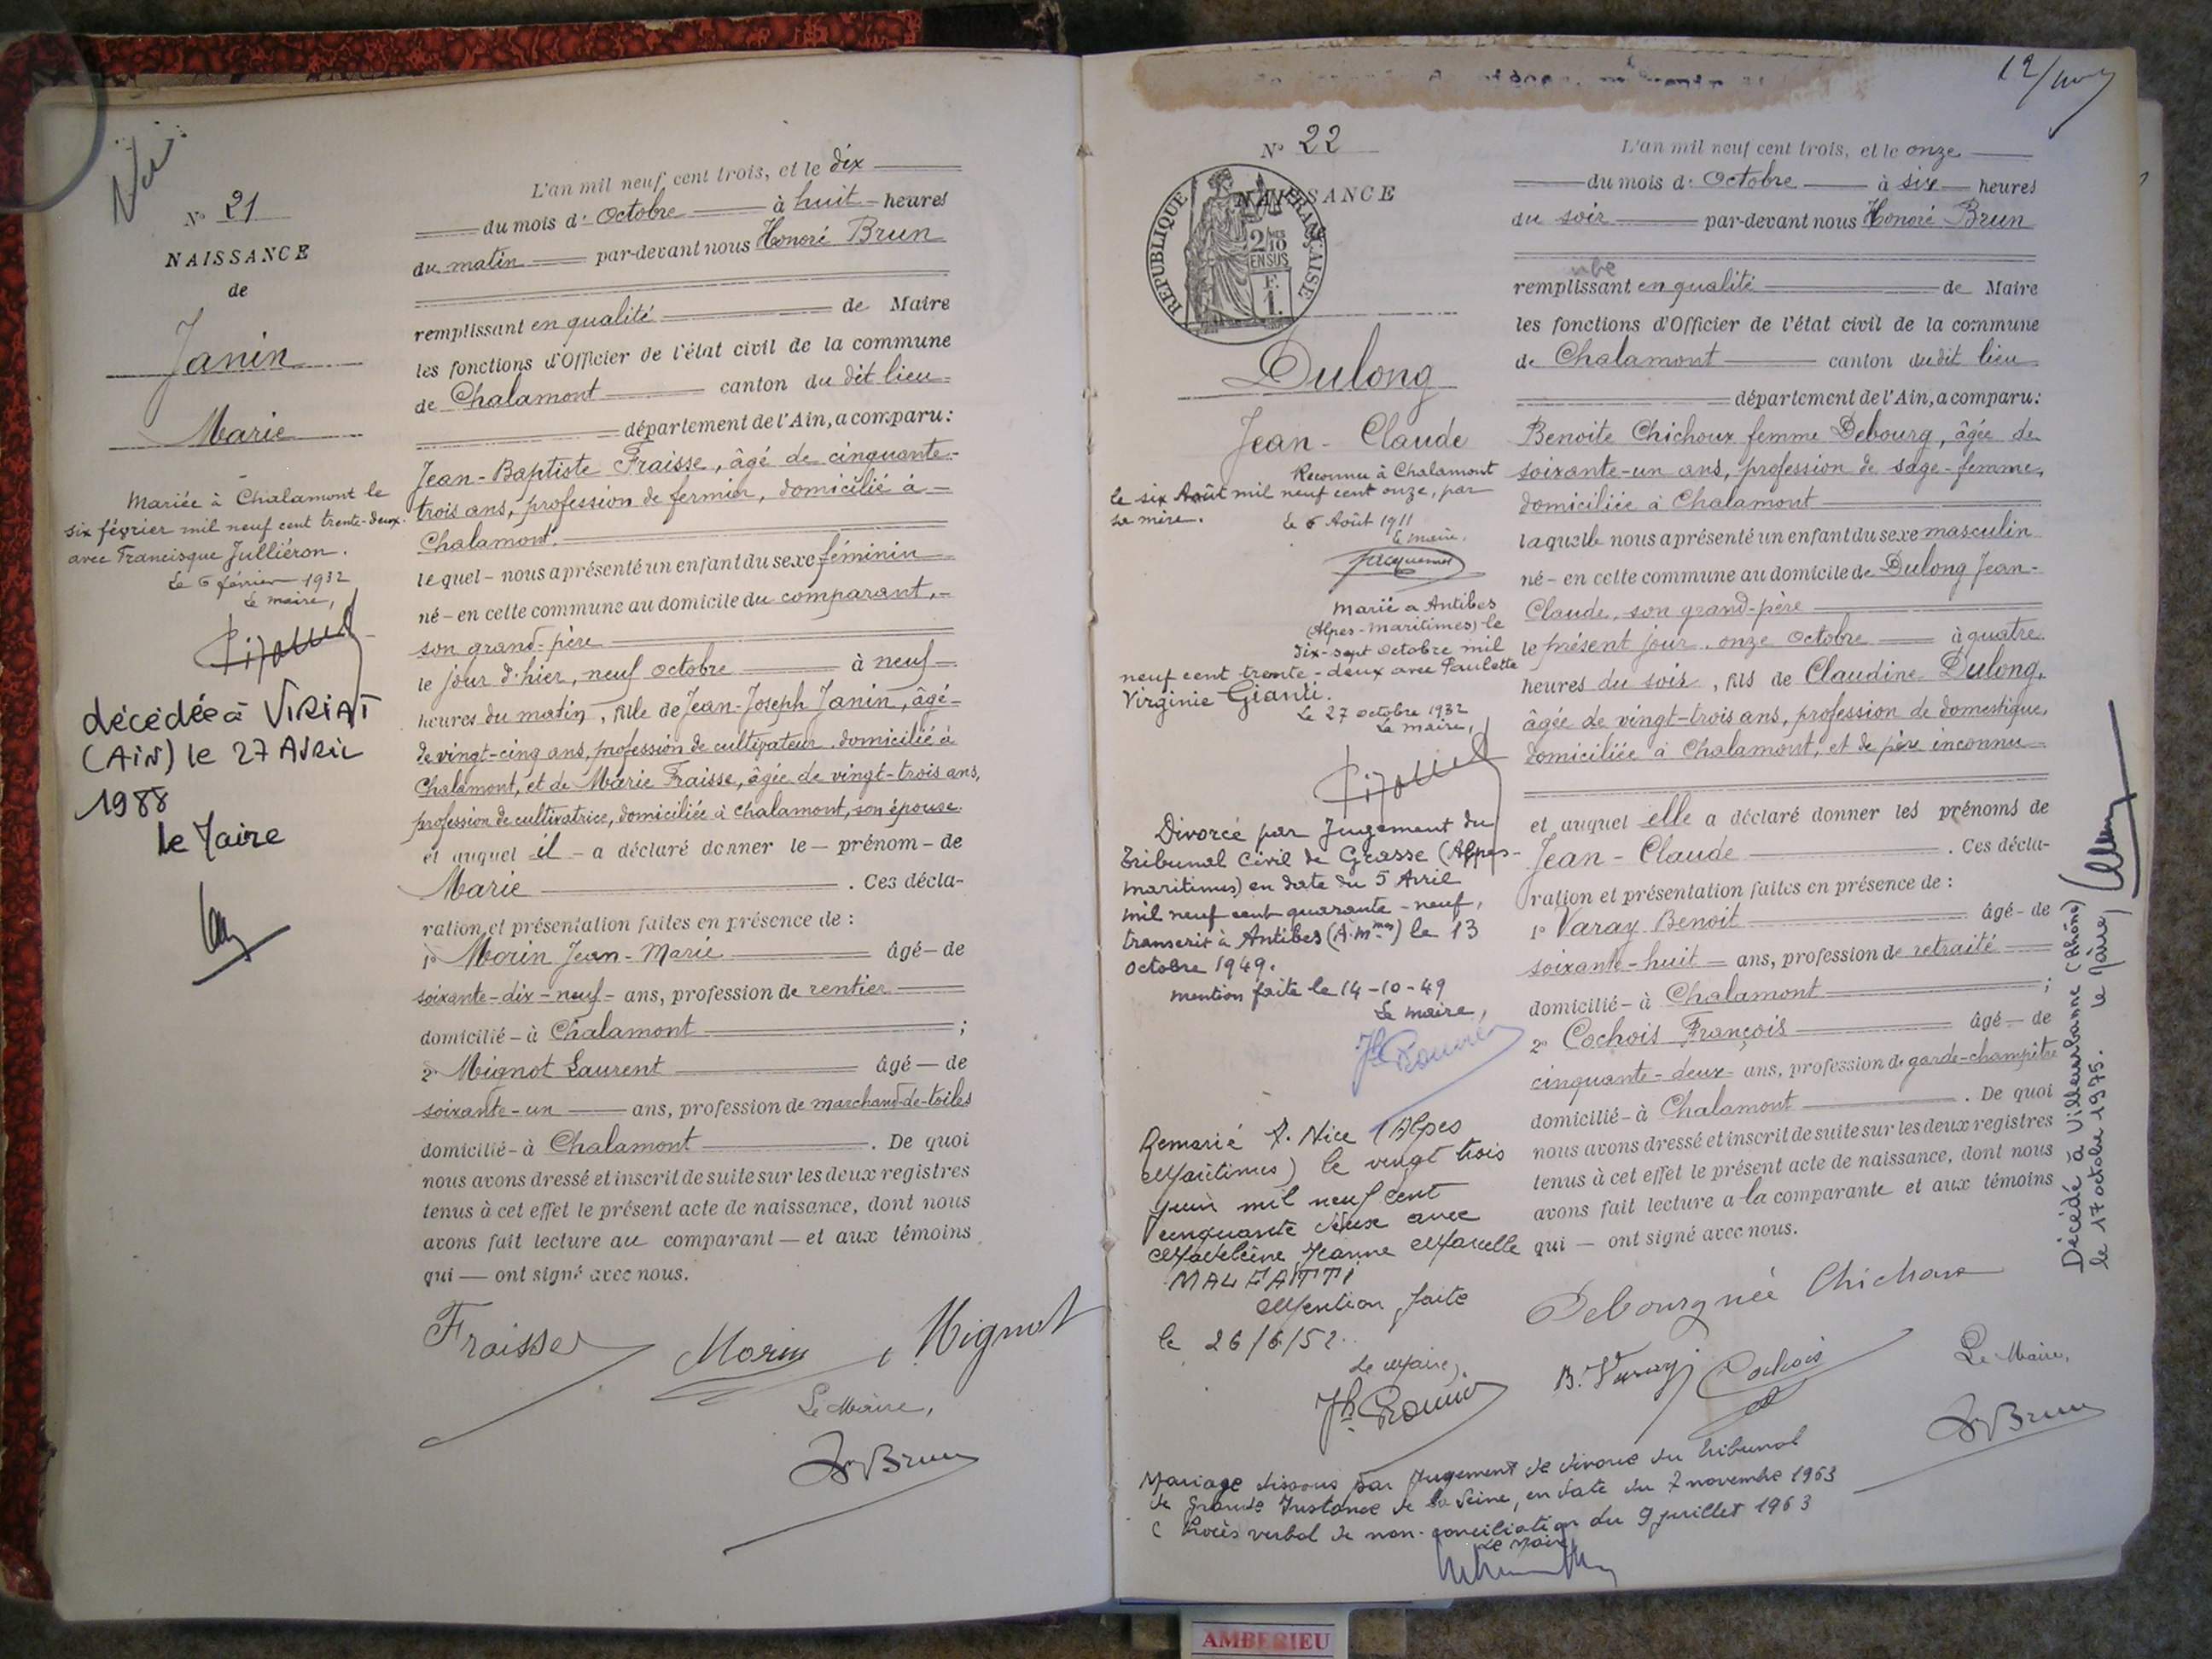 Nº 21
NAISSANCE
de
Janin
Marie
Mariée à Chalamont le
six février mil neuf cent trente-deux
avec Francisque Julliéron.
Le 6 février 1932
Le maire,
décédée à VIRIAT
(AiN) le 27 AVRIL
1988
le Maire
L'an mil neuf cent trois, et le dix
du mois d'Octobre à huit heures
du matin par-devant nous Honoré Brun
remplissant en qualité de Maire
les fonctions d'Officier de l'état civil de la commune
de Chalamont canton du dit lieu
département de l'Ain, a comparu:
Jean-Baptiste Fraisse, âgé de cinquante-
trois ans, profession de fermier, domicilié à
Chalamont.
lequel nous a présenté un enfant du sexe féminin
né en cette commune au domicile du comparant,
son grand-père
le jour d'hier, neuf octobre à neuf
heures du matin, fille de Jean-Joseph Janin, âgé
de vingt-cinq ans, profession de cultivateur, domicilié à
Chalamont, et de Marie Fraisse, âgée de vingt-trois ans,
profession de cultivatrice, domiciliée à Chalamont, son épouse
et auquel il a déclaré donner le prénom de
Marie. Ces décla-
ration et présentation faites en présence de :
1º Morin Jean-Marie âgé de
soixante-dix-neuf ans, profession de rentier
domicilié à Chalamont ;
2º Mignot Laurent âgé de
soixante-un ans, profession de marchand-de-toiles
domicilié à Chalamont. De quoi
nous avons dressé et inscrit de suite sur les deux registres
tenus à cet effet le présent acte de naissance, dont nous
avons fait lecture au comparant et aux témoins
qui ont signé avec nous.
Fraisse Morin Mignot
Le Maire,
Brun
Nº 22
NAISSANCE
RÉPUBLIQUE FRANÇAISE
2/10 EN SUS
F.
1.
Dulong
Jean-Claude
Reconnu à Chalamont
le six Août mil neuf cent onze, par
sa mère.
Le 6 Août 1911
Le maire,
Marié à Antibes
(Alpes-Maritimes) le
dix-sept octobre mil
neuf cent trente-deux avec Paulette
Virginie Gianti.
Le 27 octobre 1932
Le maire,
Divorcé par Jugement du
Tribunal Civil de Grasse (Alpes-
maritimes) en date du 5 Avril
mil neuf cent quarante-neuf,
transcrit à Antibes (A. Mmes) le 13
octobre 1949.
mention faite le 14-10-49
Le maire,
Remarié à Nice (Alpes
Maritimes) le vingt trois
juin mil neuf cent
cinquante deux avec
Madeleine Jeanne Marcelle
MALFATTI
Mention faite
le 26/6/52.
Le Maire,
Mariage dissous par Jugement de divorce du tribunal
de Grande Instance de la Seine, en date du 7 novembre 1963
( Procès verbal de non-conciliation du 9 juillet 1963
Le Maire
12/
L'an mil neuf cent trois, et le onze
du mois d'Octobre à six heures
du soir par-devant nous Honoré Brun
remplissant en qualité de Maire
les fonctions d'Officier de l'état civil de la commune
de Chalamont canton du dit lieu
département de l'Ain, a comparu:
Benoite Chichoux femme Debourg, âgée de
soixante-un ans, profession de sage-femme,
domiciliée à Chalamont
laquelle nous a présenté un enfant du sexe masculin
né en cette commune au domicile de Dulong Jean-
Claude, son grand-père
le présent jour, onze octobre à quatre
heures du soir, fils de Claudine Dulong,
âgée de vingt-trois ans, profession de domestique,
domiciliée à Chalamont, et de père inconnu
et auquel elle a déclaré donner les prénoms de
Jean-Claude. Ces décla-
ration et présentation faites en présence de :
1º Varay Benoit âgé de
soixante-huit ans, profession de retraité
domicilié à Chalamont ;
2º Cochois François âgé de
cinquante-deux ans, profession de garde-champêtre
domicilié à Chalamont. De quoi
nous avons dressé et inscrit de suite sur les deux registres
tenus à cet effet le présent acte de naissance, dont nous
avons fait lecture à la comparante et aux témoins
qui ont signé avec nous.
Debourg née Chichoux
B. Varay Cochois
Le Maire,
Brun
Décédé à Villeurbanne (Rhône)
le 17 octobre 1975. le Maire,
AMBERIEU